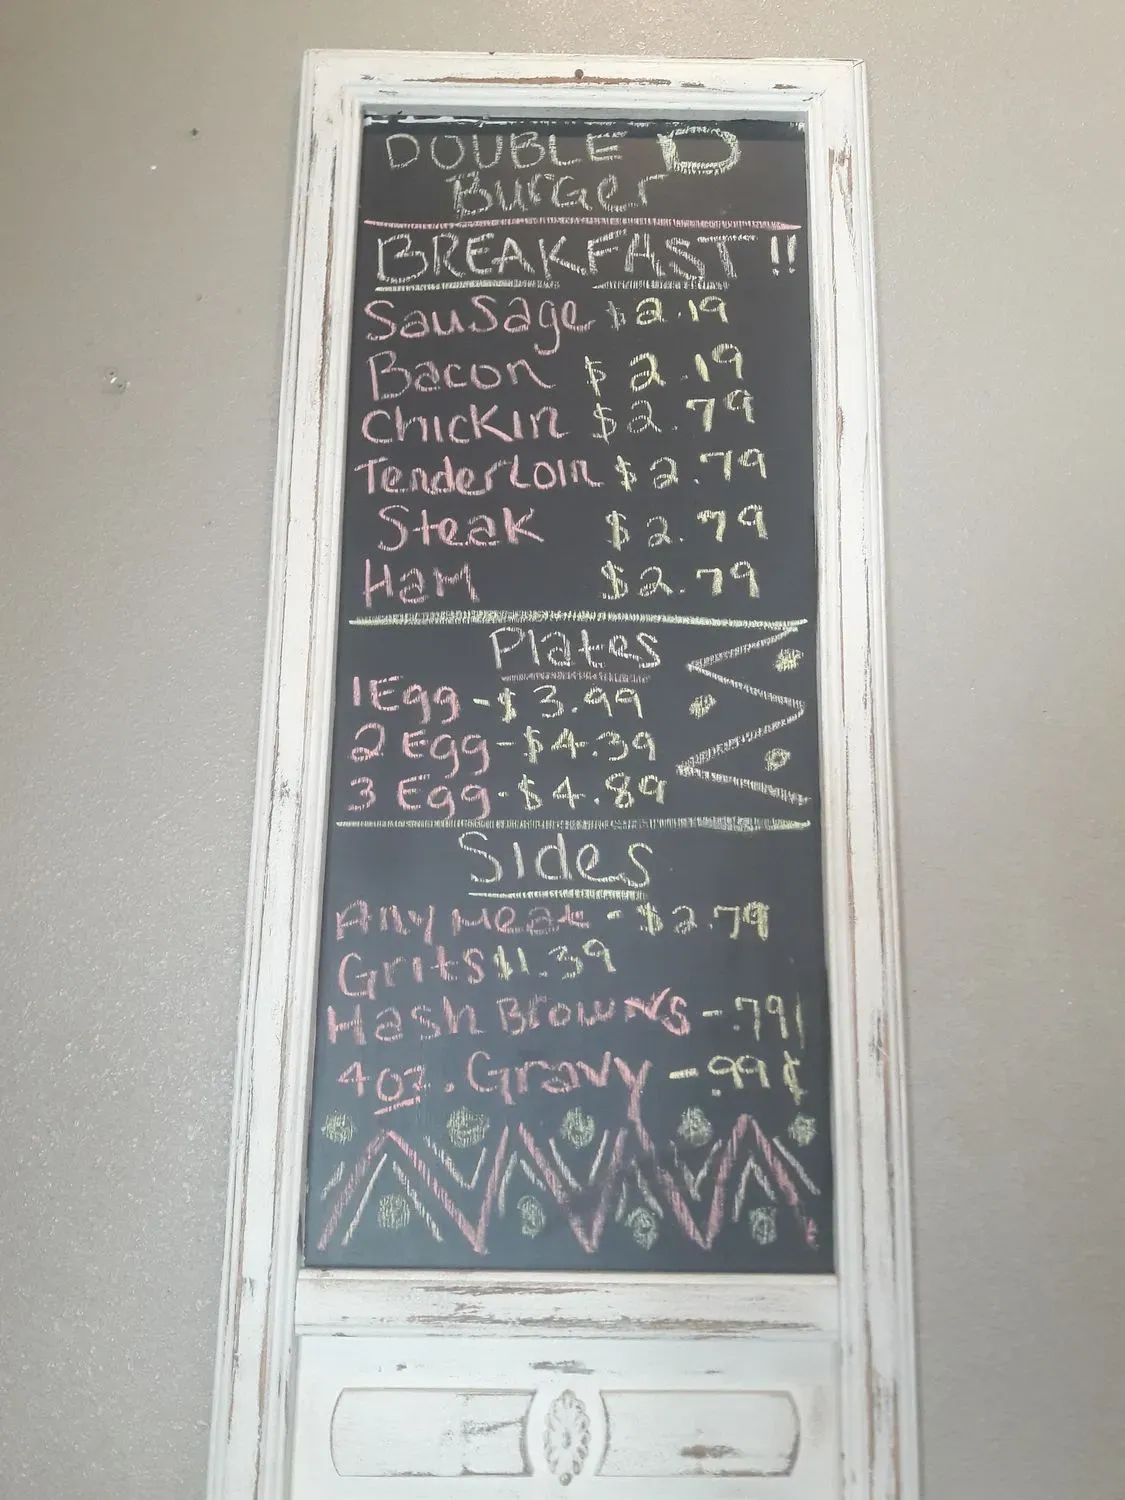 DOUBLE D
BurGer
BREAKFAST!!
Sausage $2.19
Bacon $2.19
ChickIn $2.79
TenderLoin $2.79
Steak $2.79
Ham $2.79
Plates
1 Egg - $3.99
2 Egg - $4.39
3 Egg - $4.89
Sides
Any Meat - $2.79
Grits $1.39
Hash Browns - .79
4oz. Gravy - .99¢